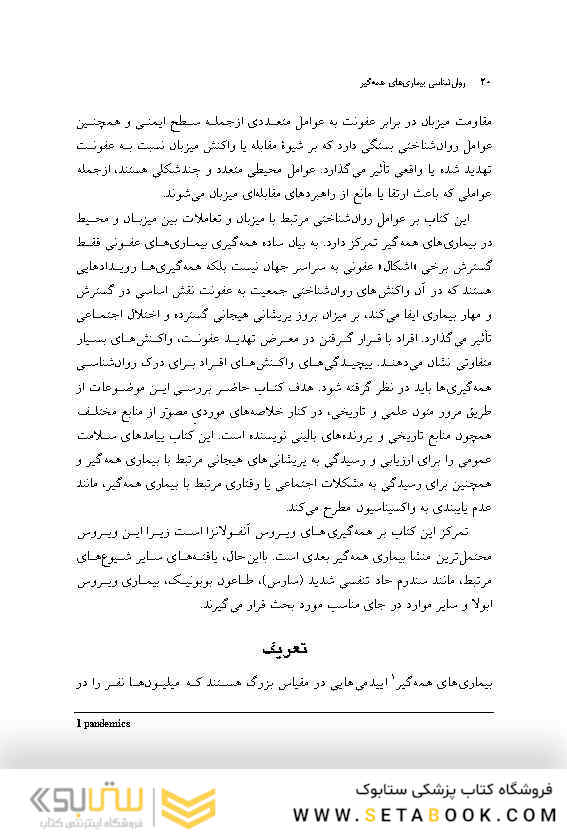 ۲۰ روان‌شناسی بیماری‌های همه‌گیر
مقاومت میزبان در برابر عفونت به عوامل متعددی ازجمله سطح ایمنی و همچنین
عوامل روان‌شناختی بستگی دارد که بر شیوهٔ مقابله یا واکنش میزبان نسبت به عفونت
تهدید شده یا واقعی تأثیر می‌گذارد. عوامل محیطی متعدد و چندشکلی هستند، ازجمله
عواملی که باعث ارتقا یا مانع از راهبردهای مقابله‌ای میزبان می‌شوند.
این کتاب بر عوامل روان‌شناختی مرتبط با میزبان و تعاملات بین میزبان و محیط
در بیماری‌های همه‌گیر تمرکز دارد. به بیان ساده همه‌گیری بیماری‌های عفونی فقط
گسترش برخی «اشکال» عفونی به سراسر جهان نیست بلکه همه‌گیری‌ها رویدادهایی
هستند که در آن واکنش‌های روان‌شناختی جمعیت به عفونت نقش اساسی در گسترش
و مهار بیماری ایفا می‌کند، بر میزان بروز پریشانی هیجانی گسترده و اختلال اجتماعی
تأثیر می‌گذارد. افراد با قرار گرفتن در معرض تهدید عفونت، واکنش‌های بسیار
متفاوتی نشان می‌دهند. پیچیدگی‌های واکنش‌های افراد برای درک روان‌شناسی
همه‌گیری‌ها باید در نظر گرفته شود. هدف کتاب حاضر بررسی این موضوعات از
طریق مرور متون علمی و تاریخی، در کنار خلاصه‌های موردیِ مصوّر از منابع مختلف
همچون منابع تاریخی و پرونده‌های بالینی نویسنده است. این کتاب پیامدهای سلامت
عمومی را برای ارزیابی و رسیدگی به پریشانی‌های هیجانی مرتبط با بیماری همه‌گیر و
همچنین برای رسیدگی به مشکلات اجتماعی یا رفتاری مرتبط با بیماری همه‌گیر، مانند
عدم پایبندی به واکسیناسیون مطرح می‌کند.
تمرکز این کتاب بر همه‌گیری‌های ویروس آنفولانزا است زیرا این ویروس
محتمل‌ترین منشأ بیماری همه‌گیر بعدی است. بااین‌حال، یافته‌های سایر شیوع‌های
مرتبط، مانند سندرم حاد تنفسی شدید (سارس)، طاعون بوبونیک، بیماری ویروس
ابولا و سایر موارد در جای مناسب مورد بحث قرار می‌گیرند.
تعریف
بیماری‌های همه‌گیر۱ اپیدمی‌هایی در مقیاس بزرگ هستند که میلیون‌ها نفر را در
1 pandemics
فروشگاه کتاب پزشکی ستابوک
WWW.SETABOOK.COM
ستابوک
فروشگاه اینترنتی کتاب